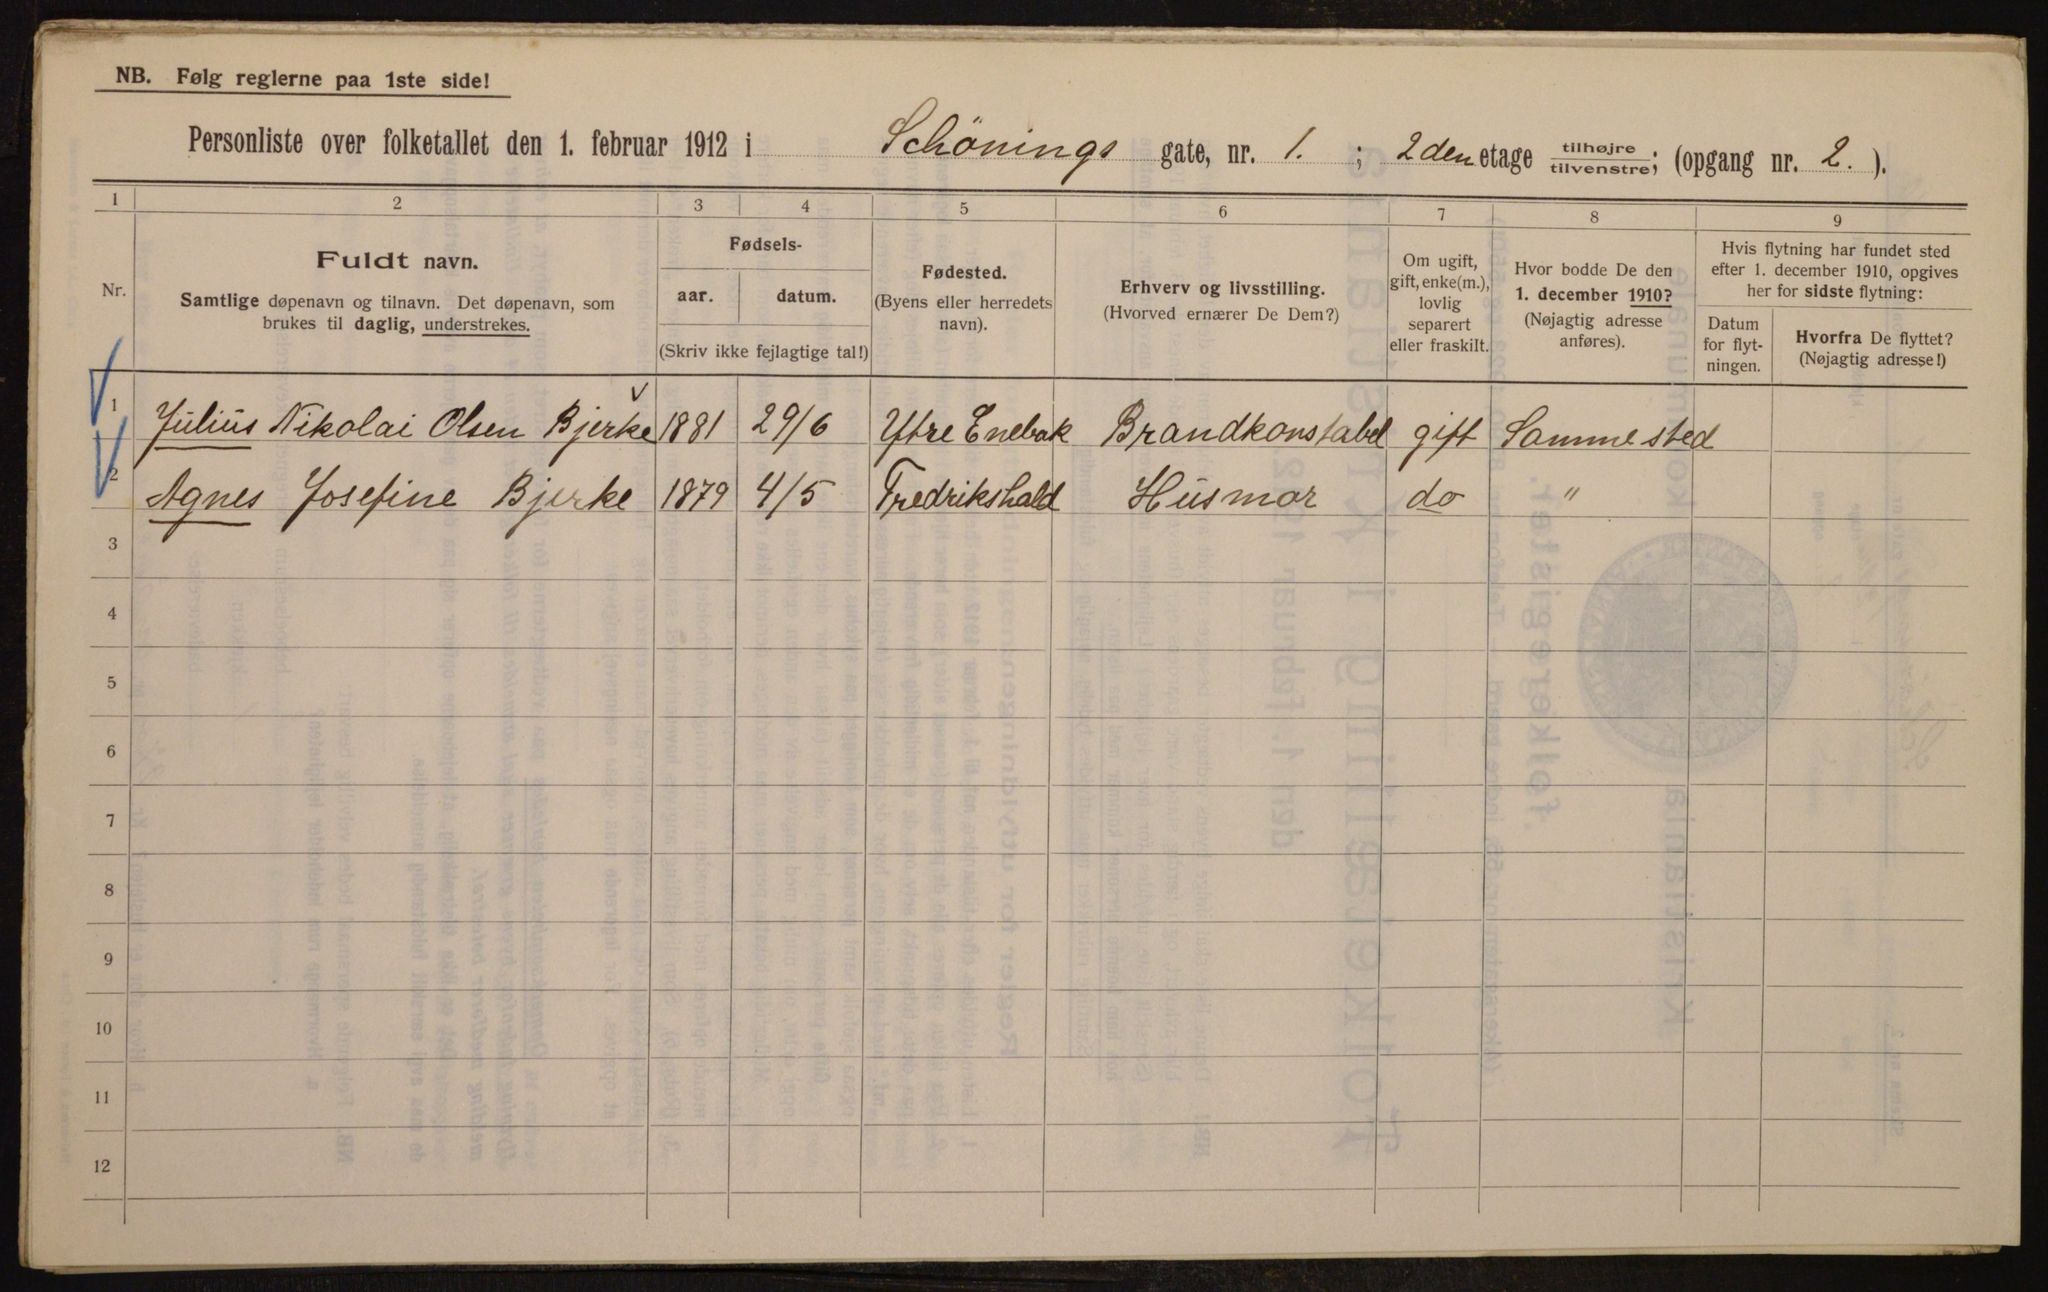 NB. Følg reglerne paa 1ste side!
Personliste over folketallet den 1. februar 1912 i Schönings gate, nr. 1. ; 2den etage tilhøjre tilvenstre; (opgang nr. 2. ).
1 2 3 4 5 6 7 8 9
Nr.
Fuldt navn.
Samtlige døpenavn og tilnavn. Det døpenavn, som
brukes til daglig, understrekes.
Fødsels-
aar. datum.
(Skriv ikke fejlagtige tal!)
Fødested.
(Byens eller herredets
navn).
Erhverv og livsstilling.
(Hvorved ernærer De Dem?)
Om ugift,
gift, enke(m.),
lovlig
separert
eller fraskilt.
Hvor bodde De den
1. december 1910?
(Nøjagtig adresse
anføres).
Hvis flytning har fundet sted
efter 1. december 1910, opgives
her for sidste flytning:
Datum
for flyt-
ningen.
Hvorfra De flyttet?
(Nøjagtig adresse!)
1 Julius Nikolai Olsen Bjerke 1881 29/6 Ytre Enebak Brandkonstabel gift Samme sted
2 Agnes Josefine Bjerke 1879 4/5 Fredrikshald Husmor do "
3
4
5
6
7
8
9
10
11
12